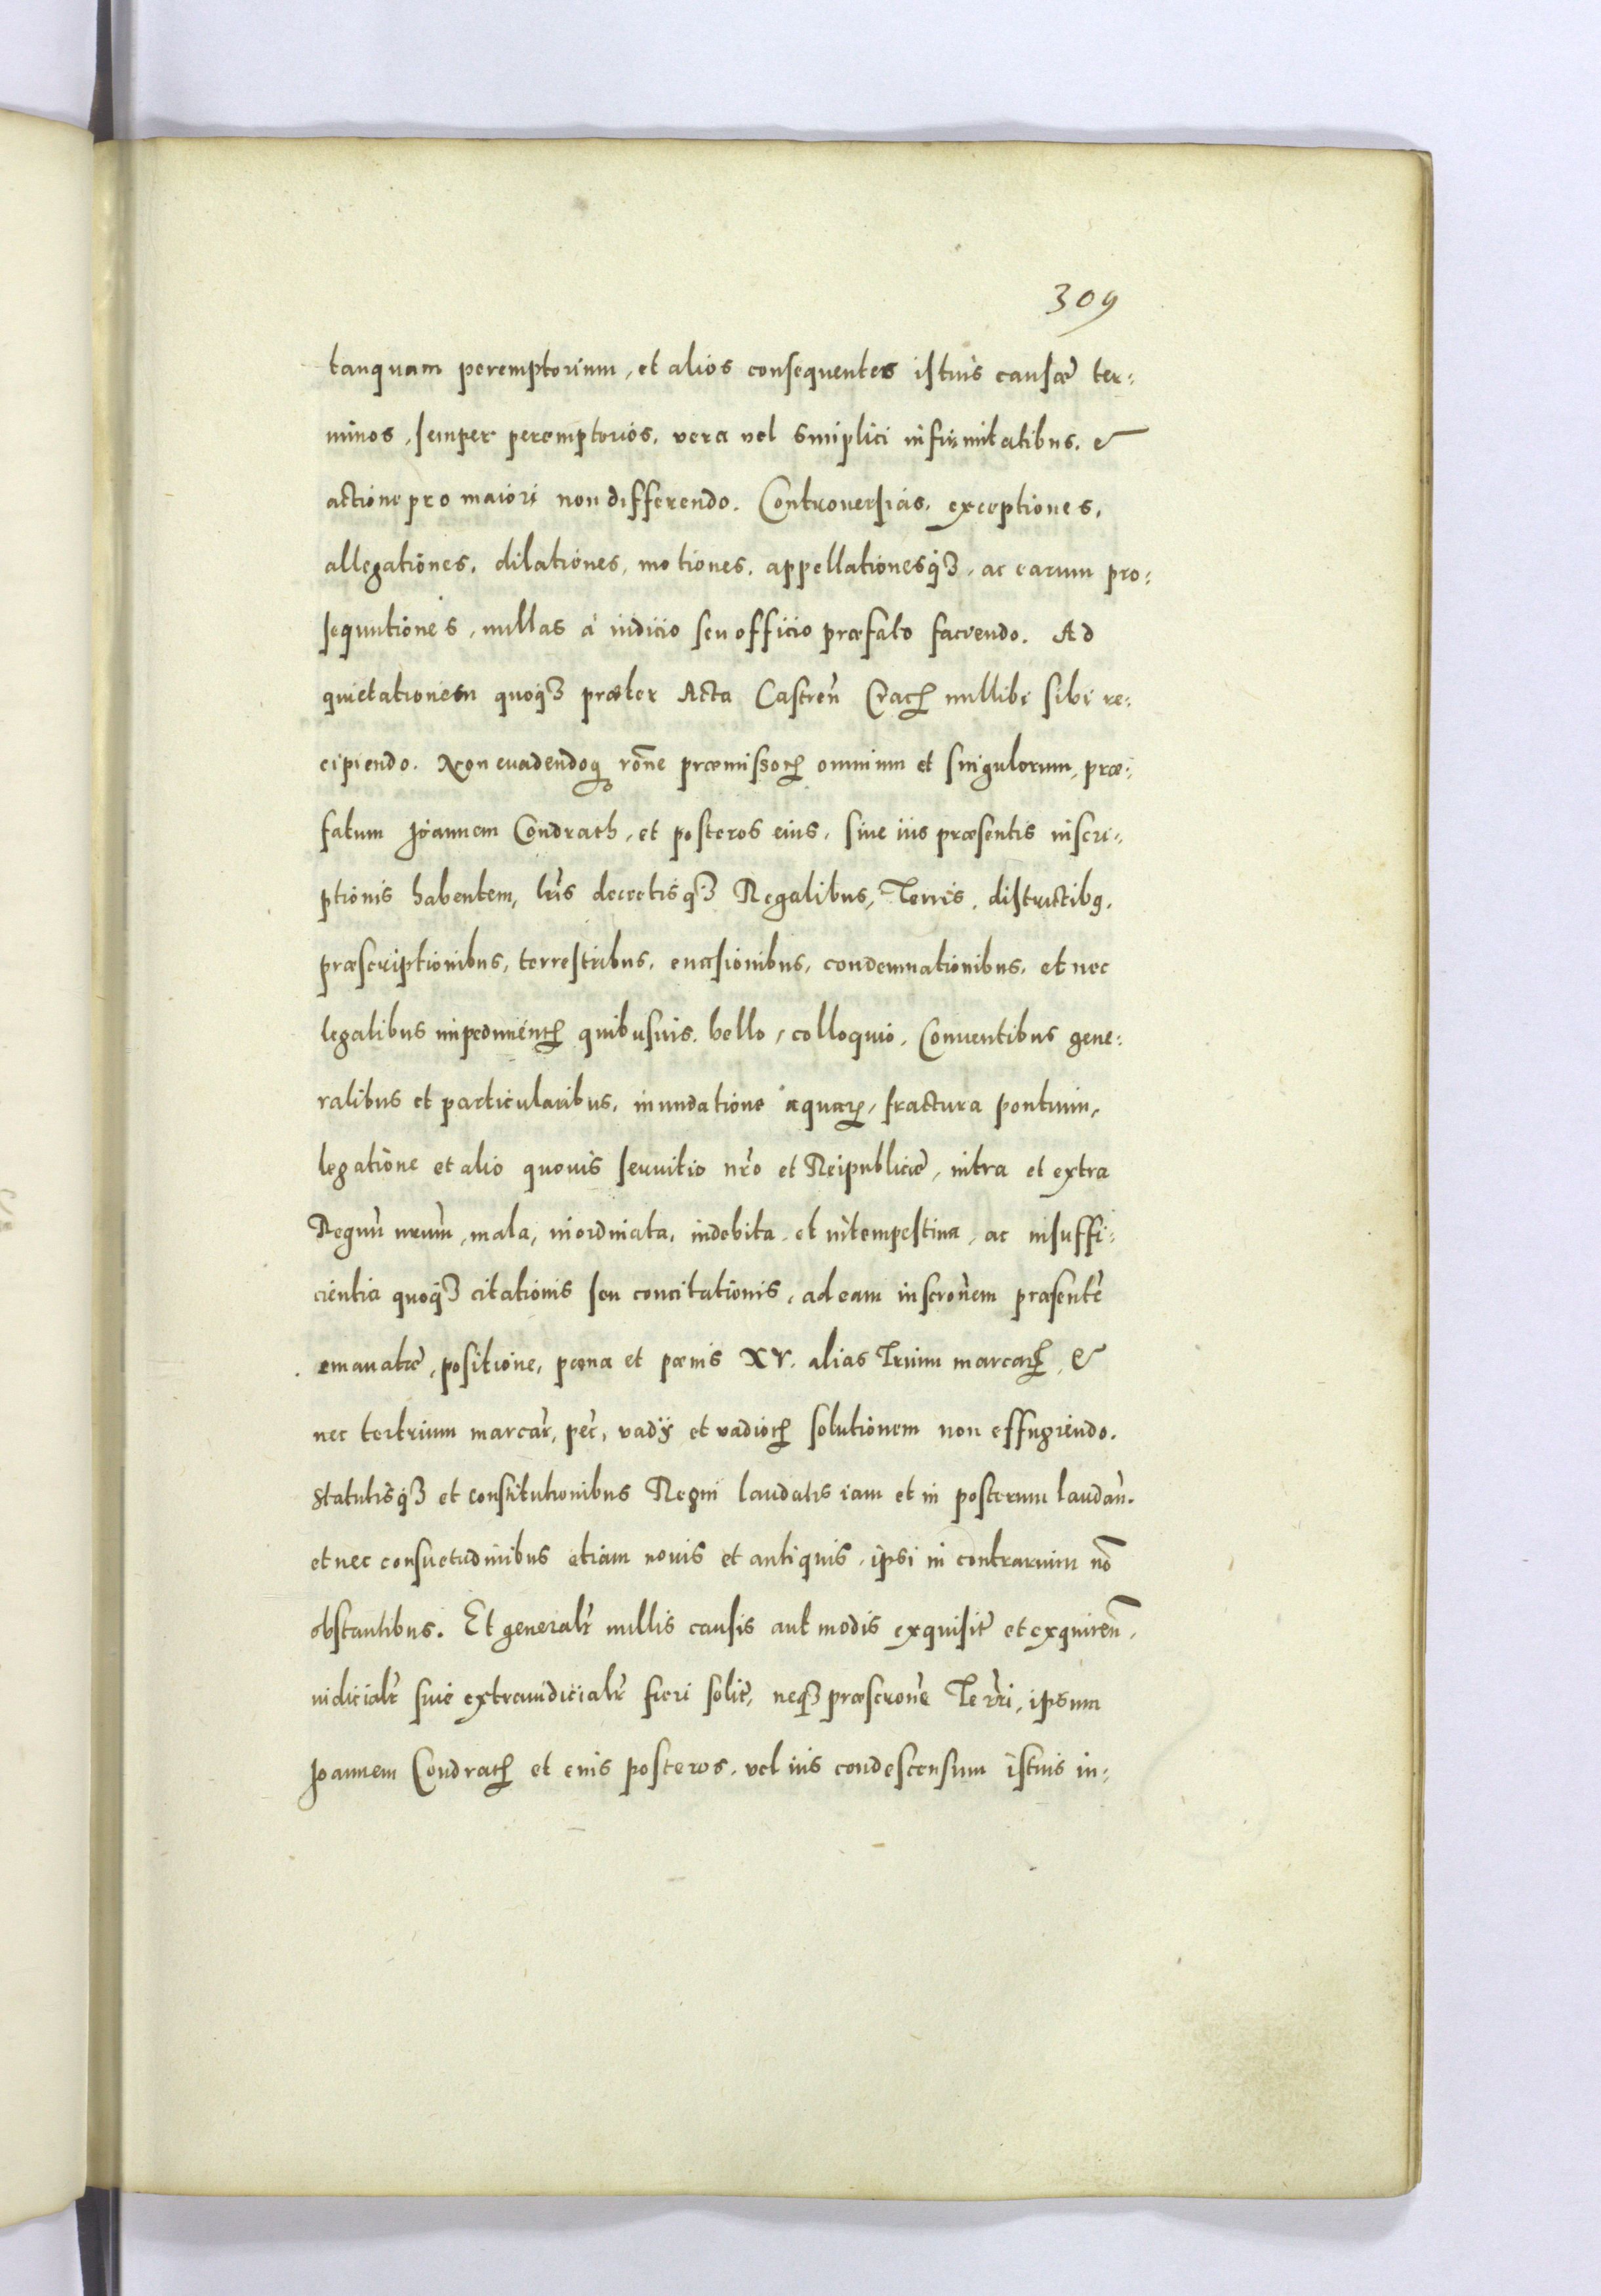 309
tanquam peremptorium, et alios consequentes istius causæ ter:
minos, semper peremptorios, vera vel simplici infirmitatibus, et
actione pro maiori non differendo. Controuersias, exceptiones,
allegationes, dilationes, motiones, appellationesq3, ac earum pro:
sequutiones, nullas à iudicio seu officio præfato faciendo. Ad
quietationem quoq3 præter Acta Castren̄ Crac̄ nullibi sibi re:
cipiendo. Non euadendoq3 rōne præmissor̄ omnium et singulorum, præ:
fatum Joannem Condrath, et posteros eius, siue ius præsentis inscri:
ptionis habentem, lr̄is decretisq3 Regalibus, Terris, districtib9,
præscriptionibus, terrestribus, euasionibus, condemnationibus, et nec
legalibus impedimēnt̄ quibusuis, bello, colloquio, Conuentibus gene:
ralibus et particularibus, inundatione aquar̄, fractura pontium,
legatione et alio quouis seruitio nr̄o et Reipublicæ, intra et extra
Regnū nrūm, mala, inordinata, indebita, et intempestiua, ac insuffi:
cientia quoq3 citationis seu concitationis, ad eam inscrōnem præsentē
emanatæ, positione, poena et poenis XV. alias Trium marcar̄, et
nec tertrium marcar̄, pec̄, vadÿ et vadior̄ solutionem non effugiendo.
Statutisq3 et constitutionibus Regni laudatis iam et in posterum laudan̄.
et nec consuetudinibus etiam nouis et antiquis, ipsi in contrarium nō
obstantibus. Et generalr̄ nullis causis aut modis exquisit̄ et exquiren̄,
iudicialr̄ siue extraiudicialr̄ fieri solit̄, neq3 præscrōne Terr̄i, ipsum
Joannem Condrath̄ et eius posteros, vel ius condescensum istius in: